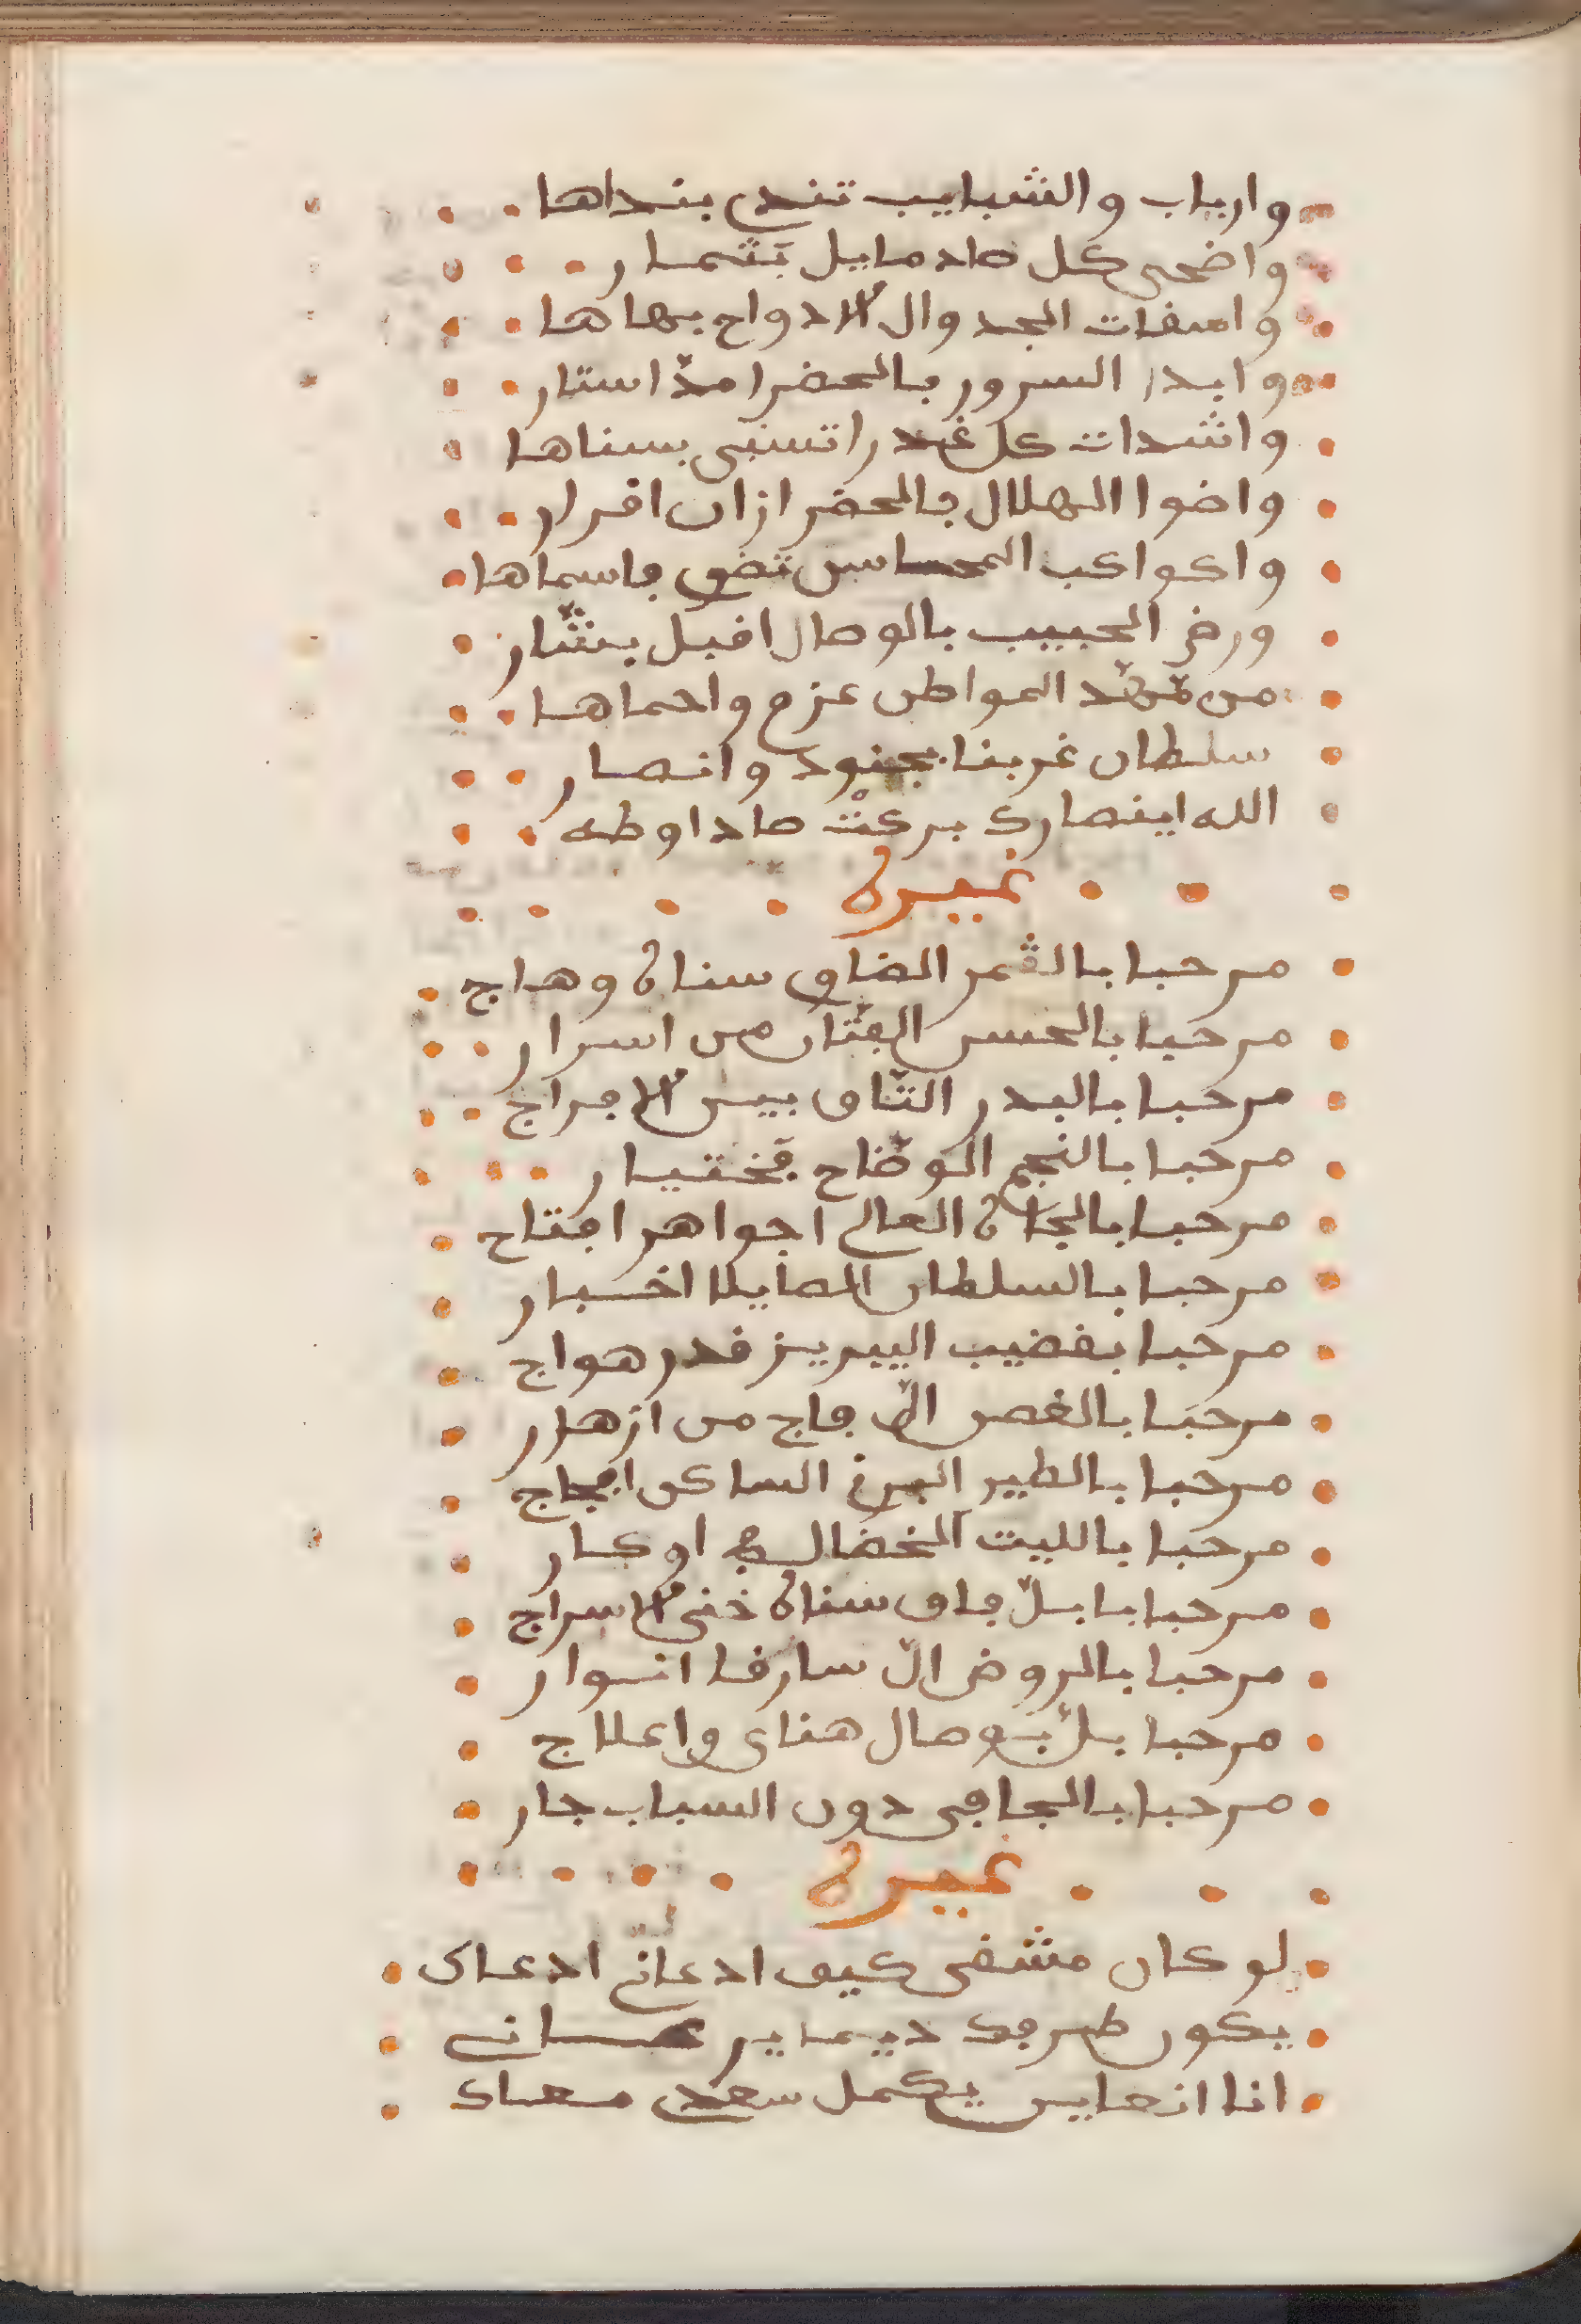 وارباب والشبايب تندي بنداها
واضحى كل صاد مايل بثمار
واسفات الجدوال الادواح بهاها
وابدا السرور بالحضرا مدّ استار
واشدات كل غيدرا تسبى بسناها
واضوا الهلال بالحضرا زان اقرار
واكواكب المحاسن تضوي باسماها
ورض الحبيب بالوصال اقبل بشّار
من مهّد المواطن عزم واحماها
سلطان غربنا بجنود وانصار
الله اينصارك بركة صاد اوطه
غيره
مرحبا بالقمر الضاوي سناه وهاج
مرحبا بالحسن الفتّان من اسرار
مرحبا بالبدر التّاق بين الابراج
مرحبا بالنجم الوضّاح فختيار
مرحبا بالجاه العالي اجواهر افتاج
مرحبا بالسلطان الصايلا اخبار
مرحبا بقضيب اليبريز قدر هواج
مرحبا بالغصن الّي فاج من ازهار
مرحبا بالطير البرني الساكن ابجاج
مرحبا بالليت الخضال في اوكار
مرحبا بابلّ فاق سناه خنى الاسراج
مرحبا بالروض الّ سارفا انوار
مرحبا بلّ بوصال هناي واعلاج
مرحبا بالجافى دون السباب جار
غيره
لو كان مشفى كيف ادعاني ادعاك
يكون طرفك ديما يرعاني
انا انعاين يكمل سعدي معاك